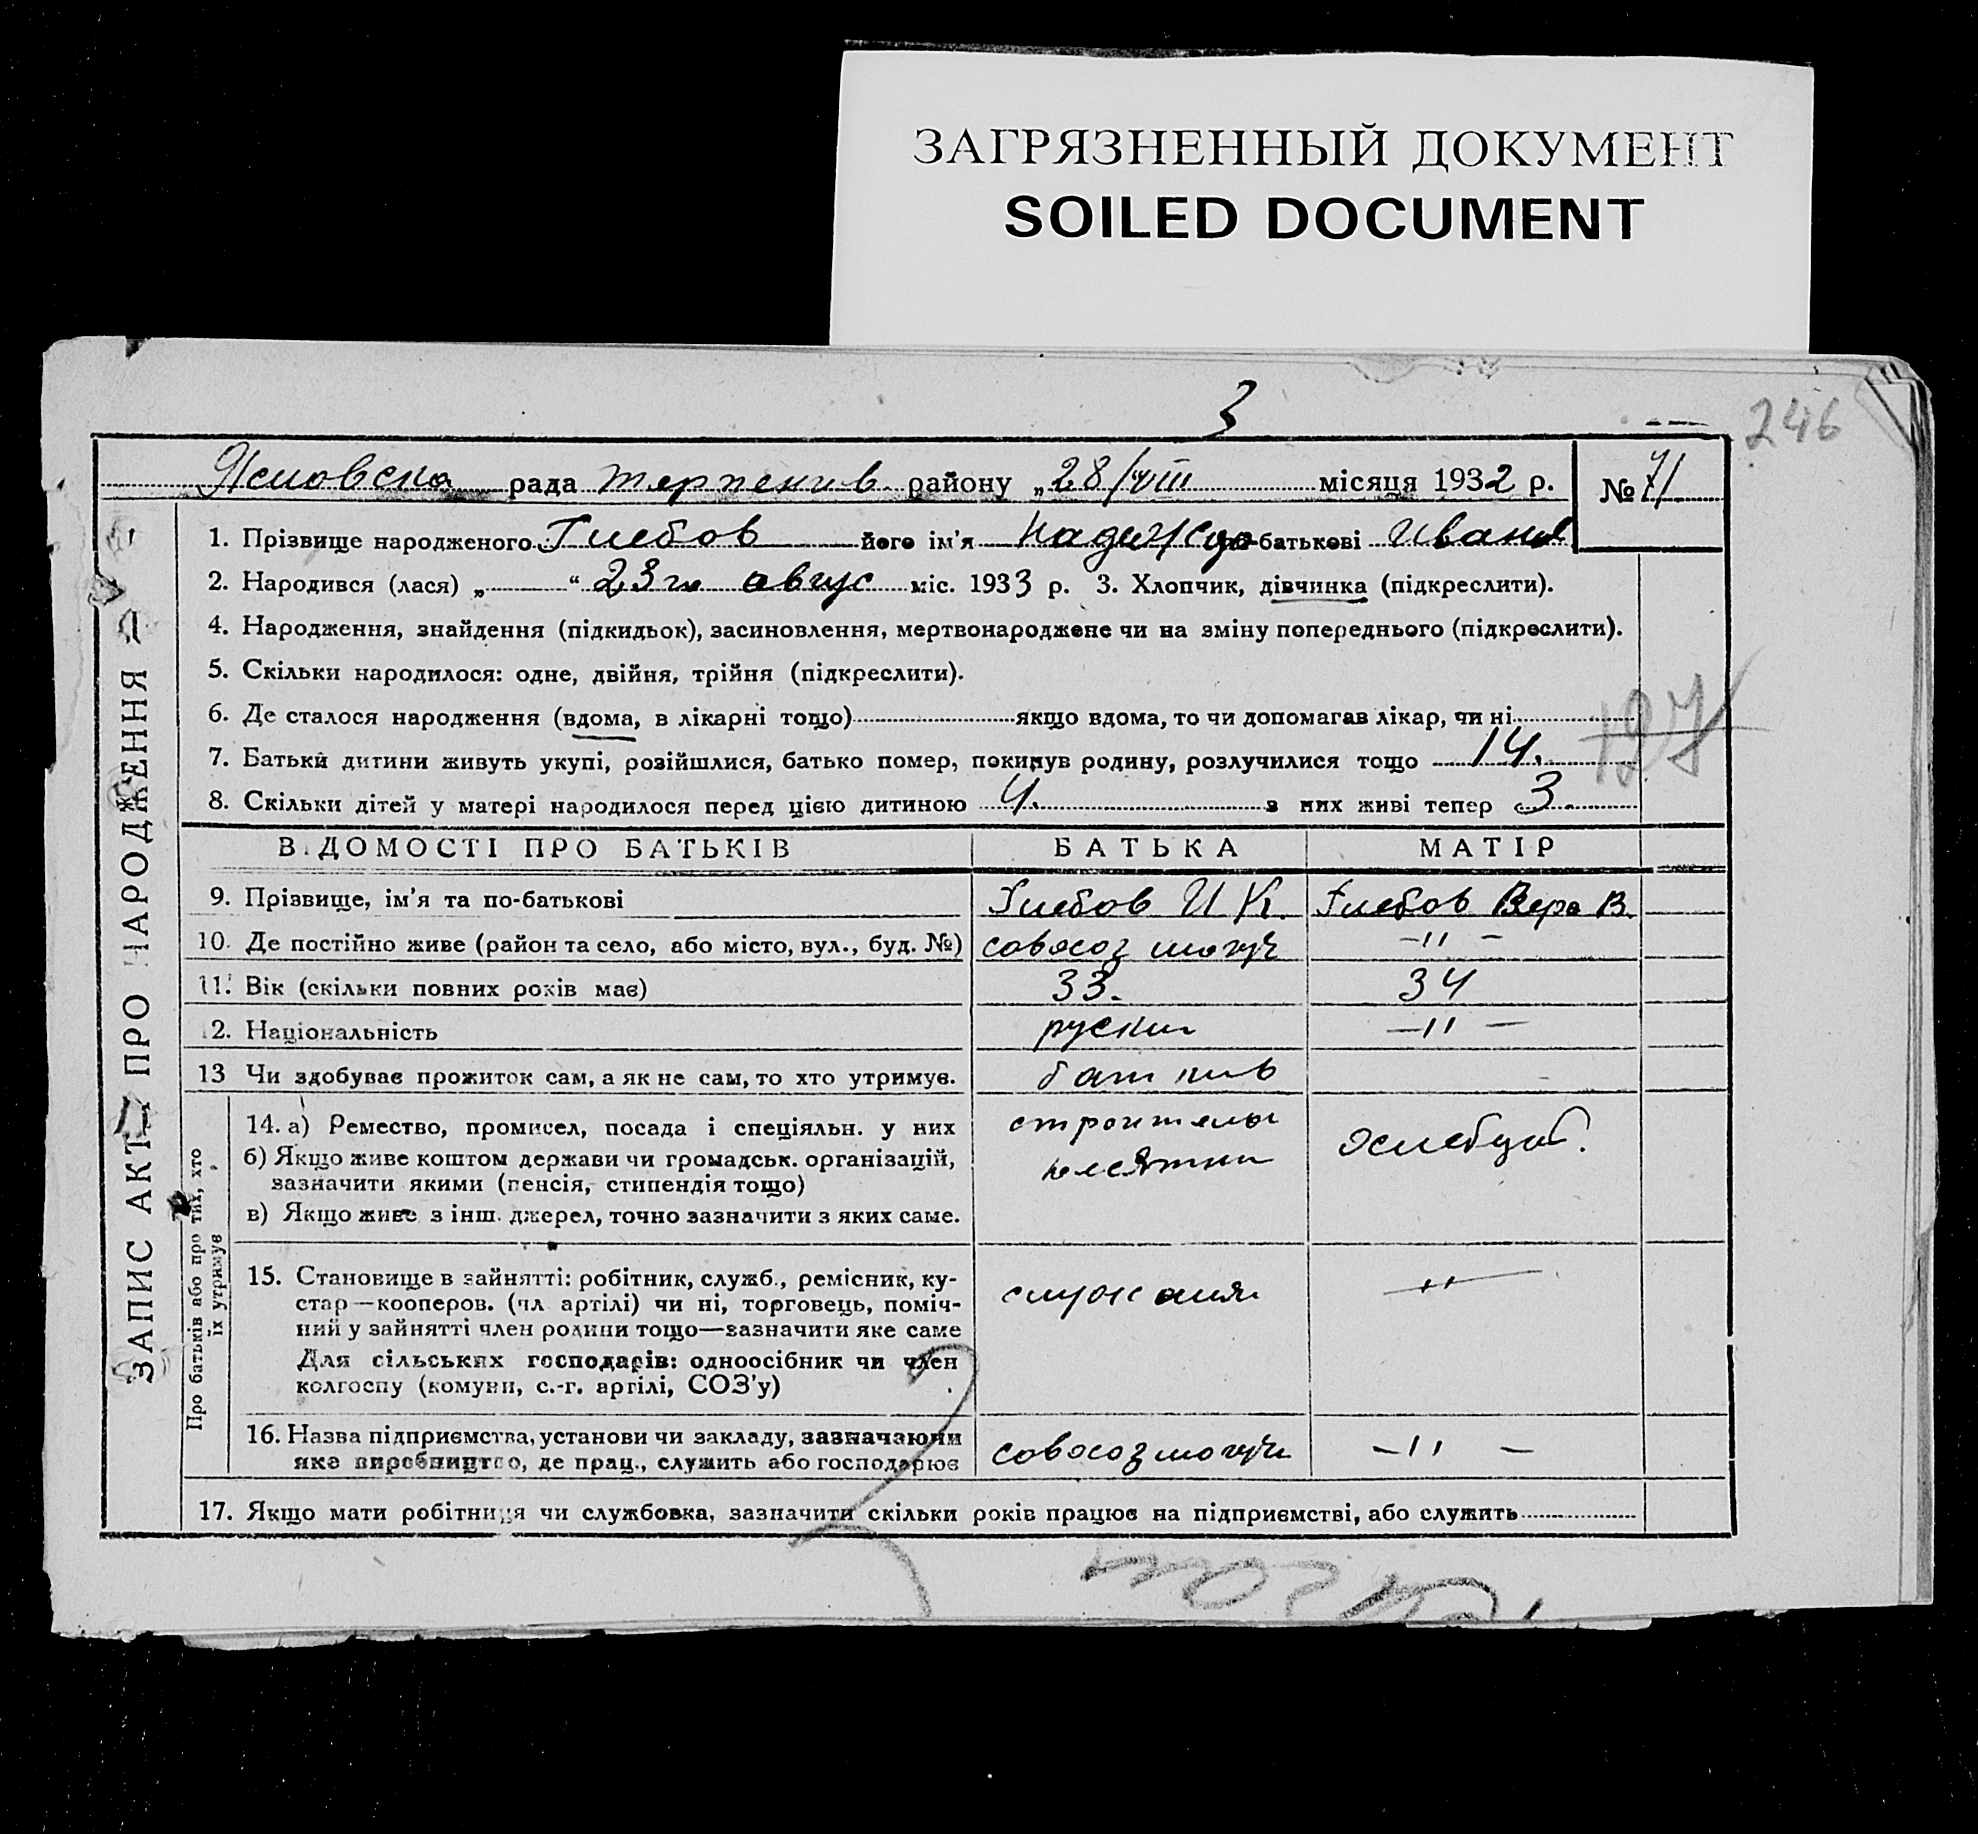 ЗАГРЯЗНЕННЫЙ ДОКУМЕНТ
SOILED DOCUMENT
3
246
рада район у „28/VIII місяця 1932 р. № 71
1. Прізвище народженого Глебов його ім'я Надежда по-батькові Иванов
2. Народився (лася) „ “ 23го авгус міс. 1933 р. 3. Хлопчик, дівчинка (підкреслити).
4. Народження, знайдення (підкидьок), засиновлення, мертвонароджене чи на зміну попереднього (підкреслити).
5. Скільки народилося: одне, двійня, трійня (підкреслити).
6. Де сталося народження (вдома, в лікарні тощо) якщо вдома, то чи допомагав лікар, чи ні
127
7. Батьки дитини живуть укупі, розійшлися, батько помер, покинув родину, розлучилися тощо 14.
8. Скільки дітей у матері народилося перед цією дитиною 4. з них живі тепер 3.
ВІДОМОСТІ ПРО БАТЬКІВ БАТЬКА МАТІР
9. Прізвище, ім'я та по-батькові Глебов И К. Глебов Вера В.
10. Де постійно живе (район та село, або місто, вул., буд. №) совхоз -"-
11. Вік (скільки повних років має) 33. 34
12. Національність руский -"-
13 Чи здобуває прожиток сам, а як не сам, то хто утримує.
14. а) Ремество, промисел, посада і спеціяльн. у них строитель
б) Якщо живе коштом держави чи громадськ. організацій,
зазначити якими (пенсія, стипендія тощо)
в) Якщо живе з інш. джерел, точно зазначити з яких саме.
15. Становище в зайнятті: робітник, служб., ремісник, ку-
стар—кооперов. (чл артілі) чи ні, торговець, поміч-
ний у зайнятті член родини тощо—зазначити яке саме
Для сільських господарів: одноосібник чи член
колгоспу (комуни, с.-г. артілі, СОЗ'у)
"
16. Назва підприємства, установи чи закладу, зазначаючи
яке виробництво, де прац., служить або господарює совхоз -"-
17. Якщо мати робітниця чи службовка, зазначити скільки років працює на підприємстві, або служить
ЗАПИС АКТ ПРО НАРОДЖЕННЯ
Про батьків або про тих, хто
їх утримує